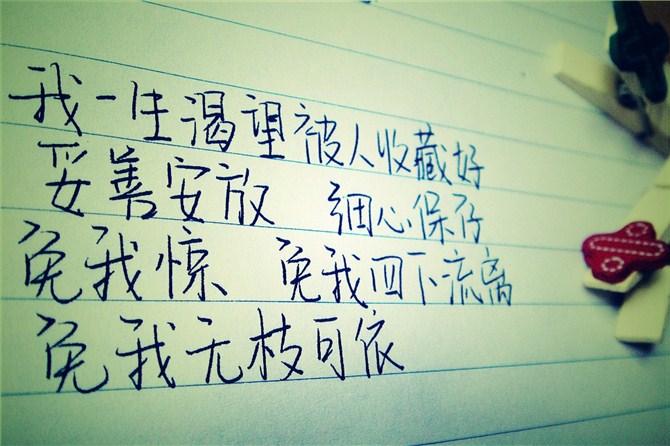 我一生渴望被人收藏好
妥善安放 细心保存
免我惊 免我四下流离
免我无枝可依